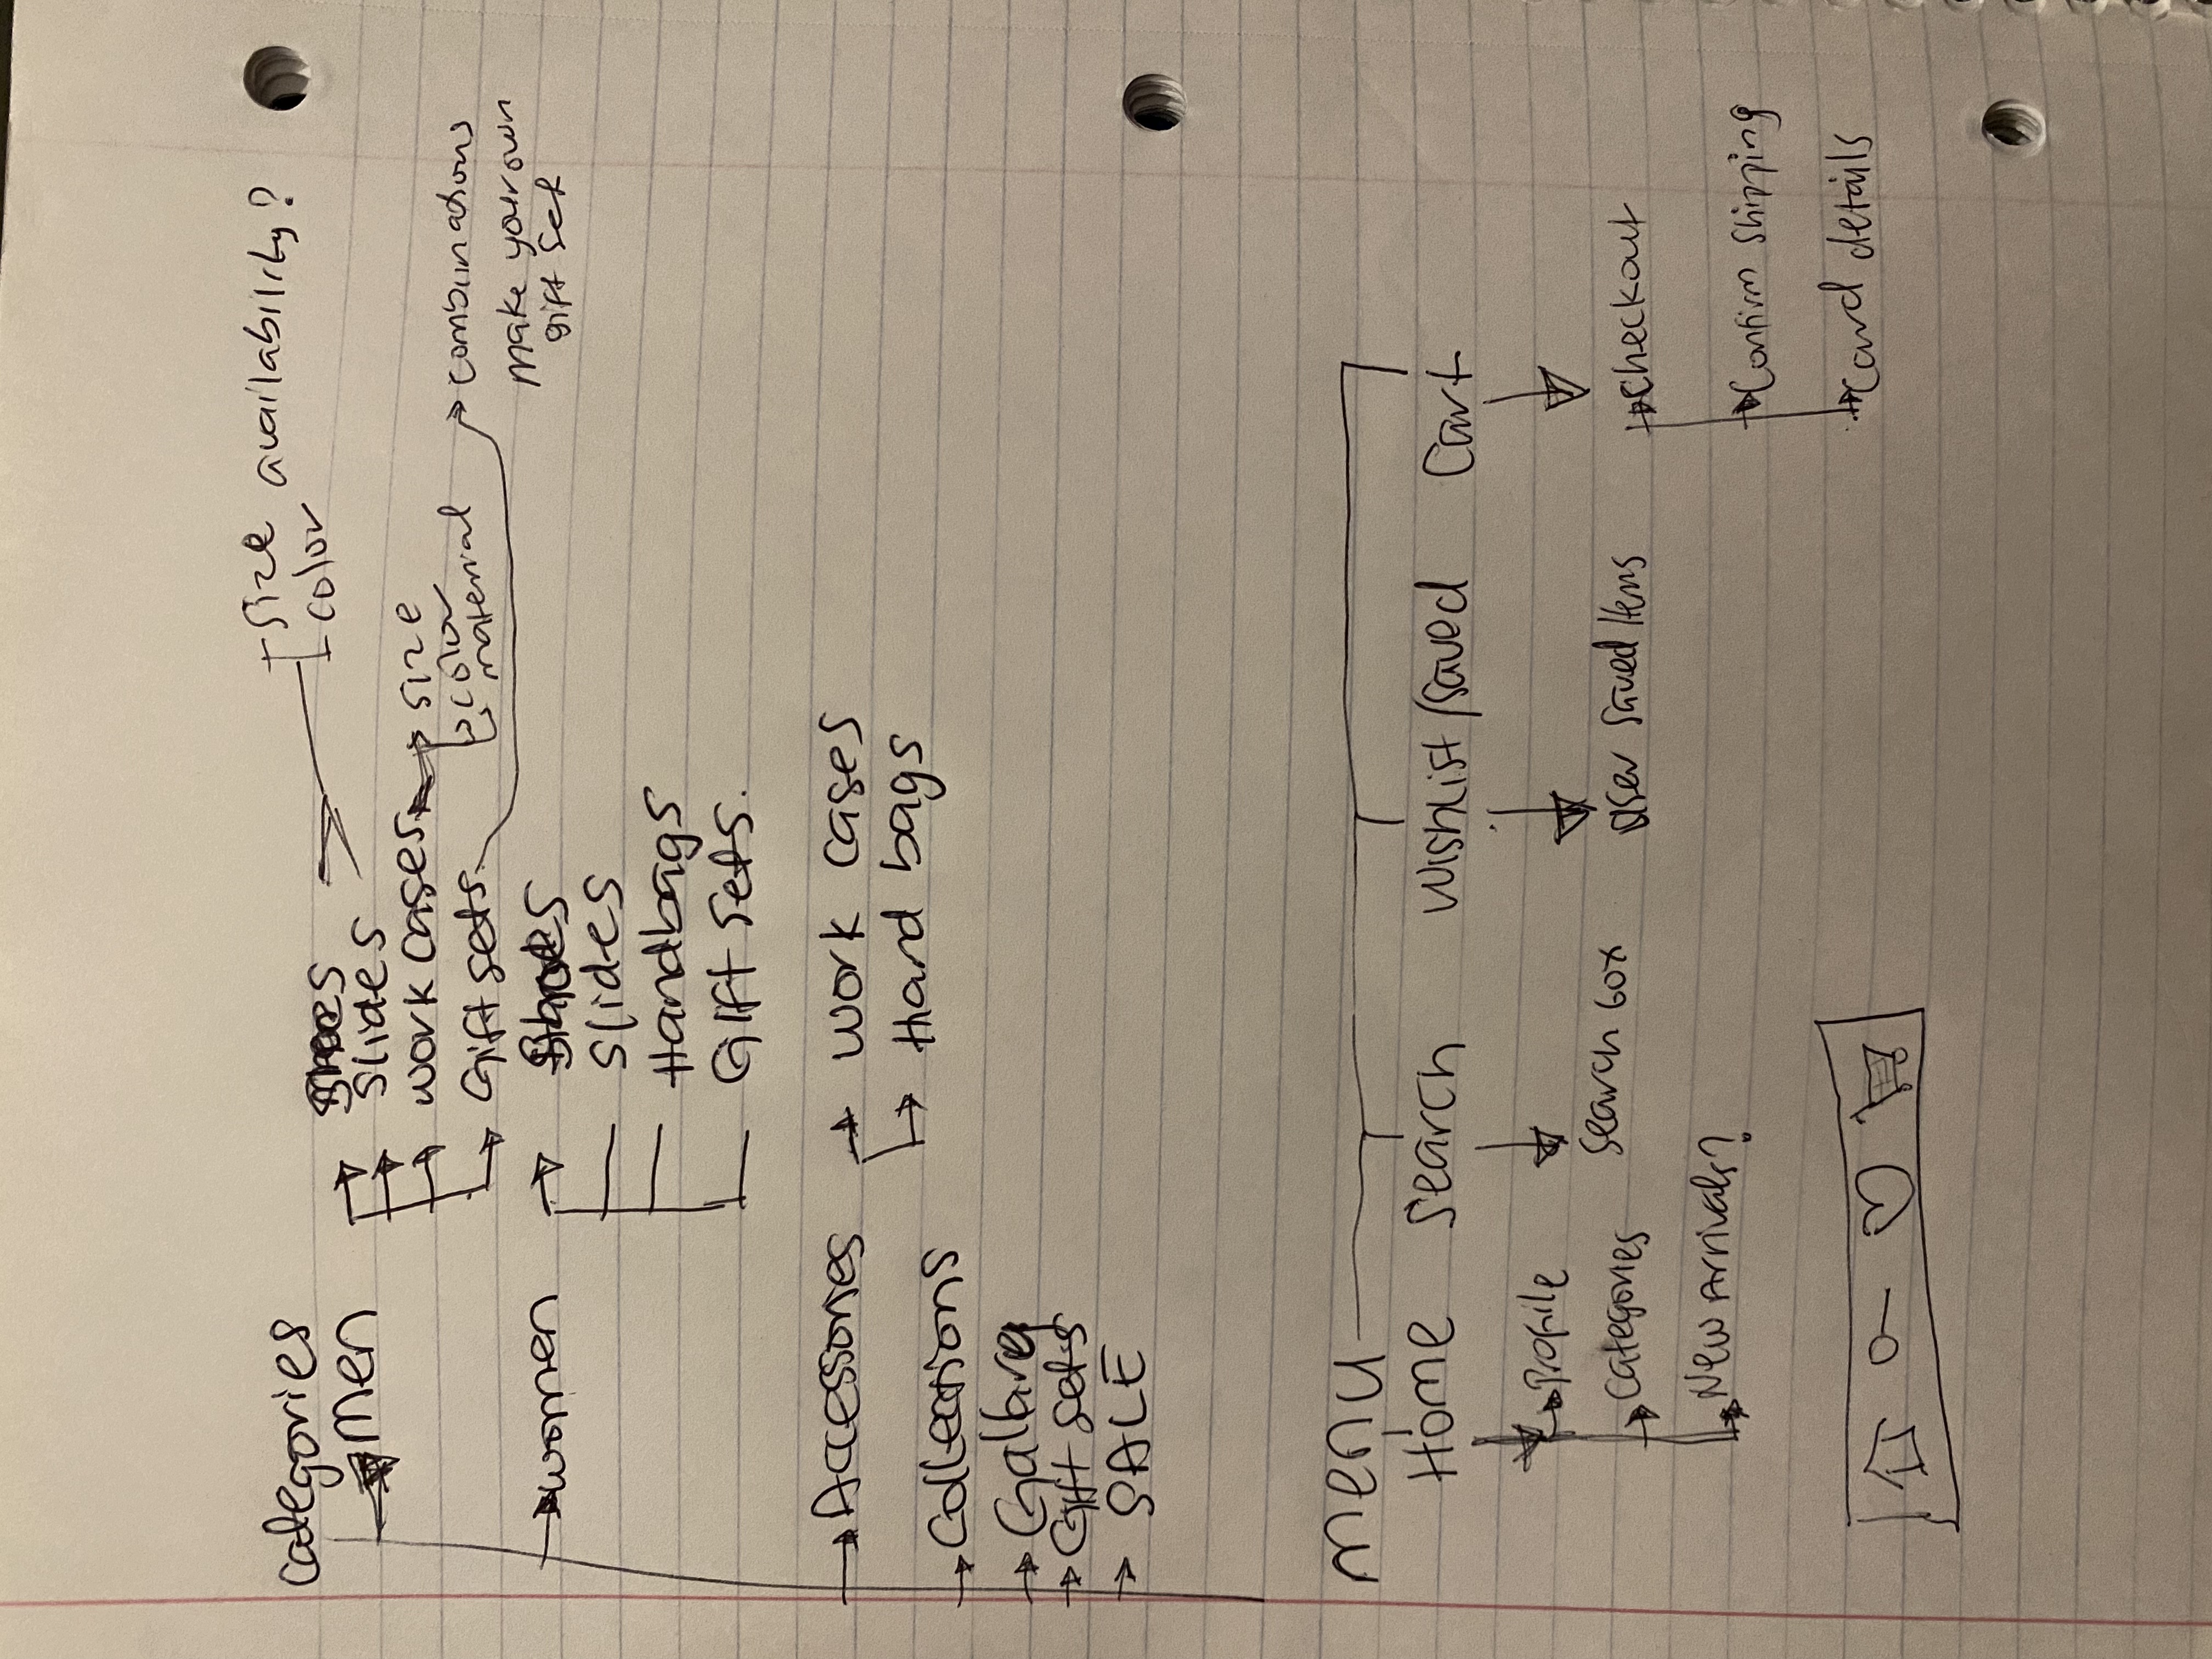 Categories
Men
Shoes
Slides
size availability?
color
work cases
size
color
material
Gift sets
combinations
make your own
gift set
women
Shoes
Slides
Handbags
Gift sets.
Accessories
work cases
Hand bags
Collections
Gift sets
SALE
menu
Home
Search
Wishlist/saved
Cart
Profile
Categories
New Arrivals?
Search box
User saved Items
Checkout
Confirm shipping
Card details